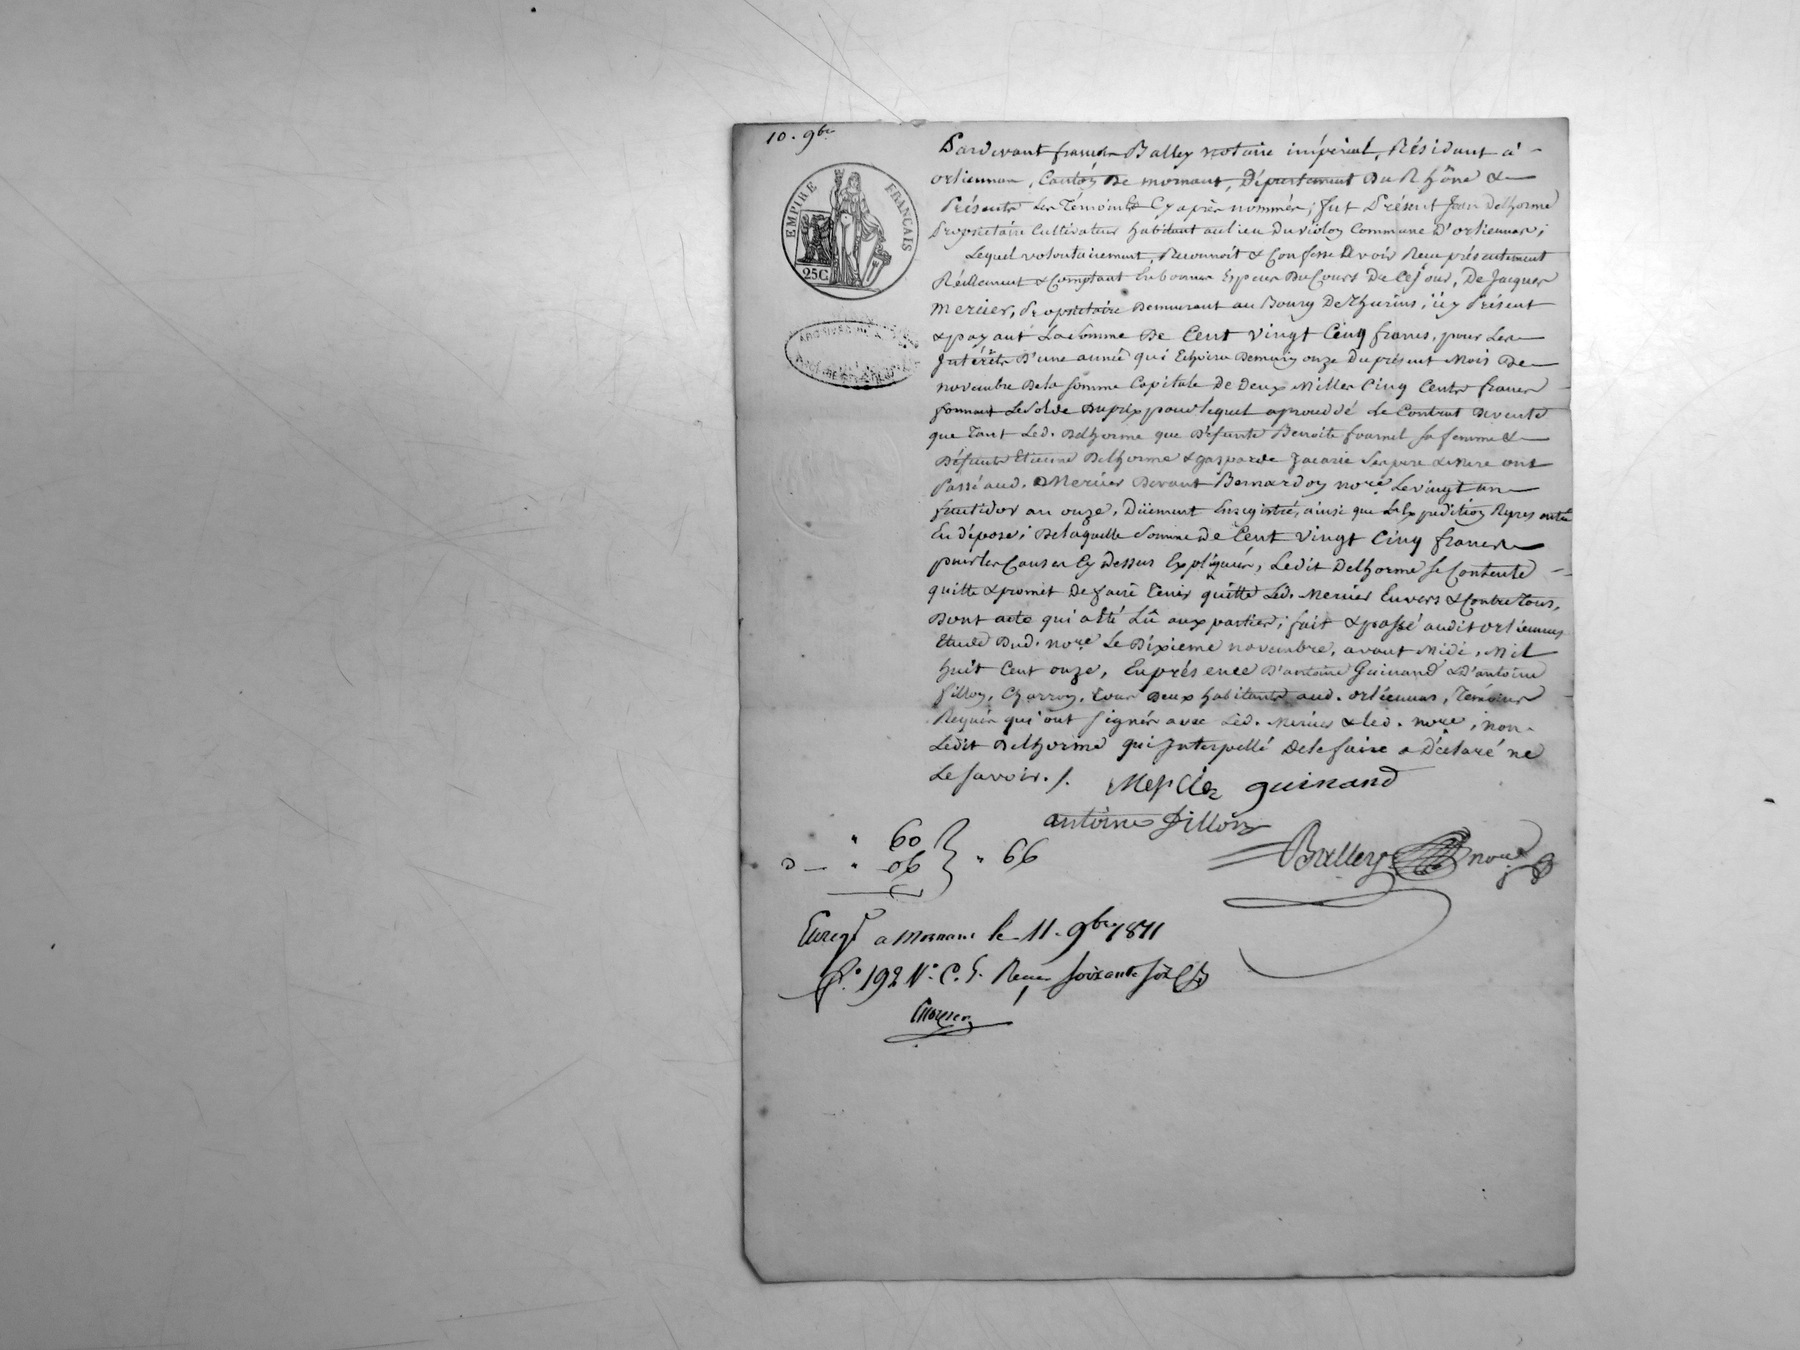 10. 9bre
EMPIRE FRANÇAIS
25C
Pardevant françois Balley notaire impérial, Résidant à
orliennas, Canton De mornant, Département Du Rhône &
Présents Les Témoins Cy après nommés; fut Présent Jean Delhorme
Propriétaire Cultivateur habitant au lieu Du violon Commune D'orliennas;
Lequel volontairement, Reconnoit & Confesse avoir Reçu présentement
Réellement & Comptant En bonnes Espèces Du Cours De Ce jour, De Jacques
Mercier, Propriétaire Demeurant au Bourg De Thurins, icy Présent
& payant La somme De Cent vingt Cinq francs, pour Les
Intérêts D'une année qui Echoira Demain onze Du présent Mois De
novembre De la somme Capitale De Deux Milles Cinq Cents francs
formant Le Solde Du prix pour lequel Le Contrat De vente
que Tant Led. Delhorme que Défunte Benoite fournel sa femme &
Défunts Etienne Delhorme & gasparde Jacarie Ses pere & mere ont
Passé aud. Mercier Devant Bernardon nore. Le vingt un
fructidor an onze, Düement Enregistré, ainsi que L'Expédition
En dépose; De laquelle Somme De Cent vingt Cinq francs
pour les Causes Cy Dessus Expliquées, Ledit Delhorme se Contente
quitte & promet De faire Tenir quitte Led. Mercier Envers & Contre Tous,
Dont acte qui a été Lû aux parties; fait & passé audit orliennas
Etude Dud. nore Le Dixieme novembre, avant Midi, Mil
huit Cent onze, En présence D'antoine Guinand & D'antoine
Pillon, Charron, Tous Deux habitants aud. orliennas, Témoins
Requis qui ont signés avec Led. Mercier & led. nore, non
Ledit Delhorme qui Interpellé De le faire a Déclaré ne
Le savoir. /.
Mercier guinand
antoine Pillon
Balley nore
" 60
D — " 06 } " 66
Enregt a Mornant le 11. 9bre 1811
fo. 192 Vo. C. 5. Reçu soixante six